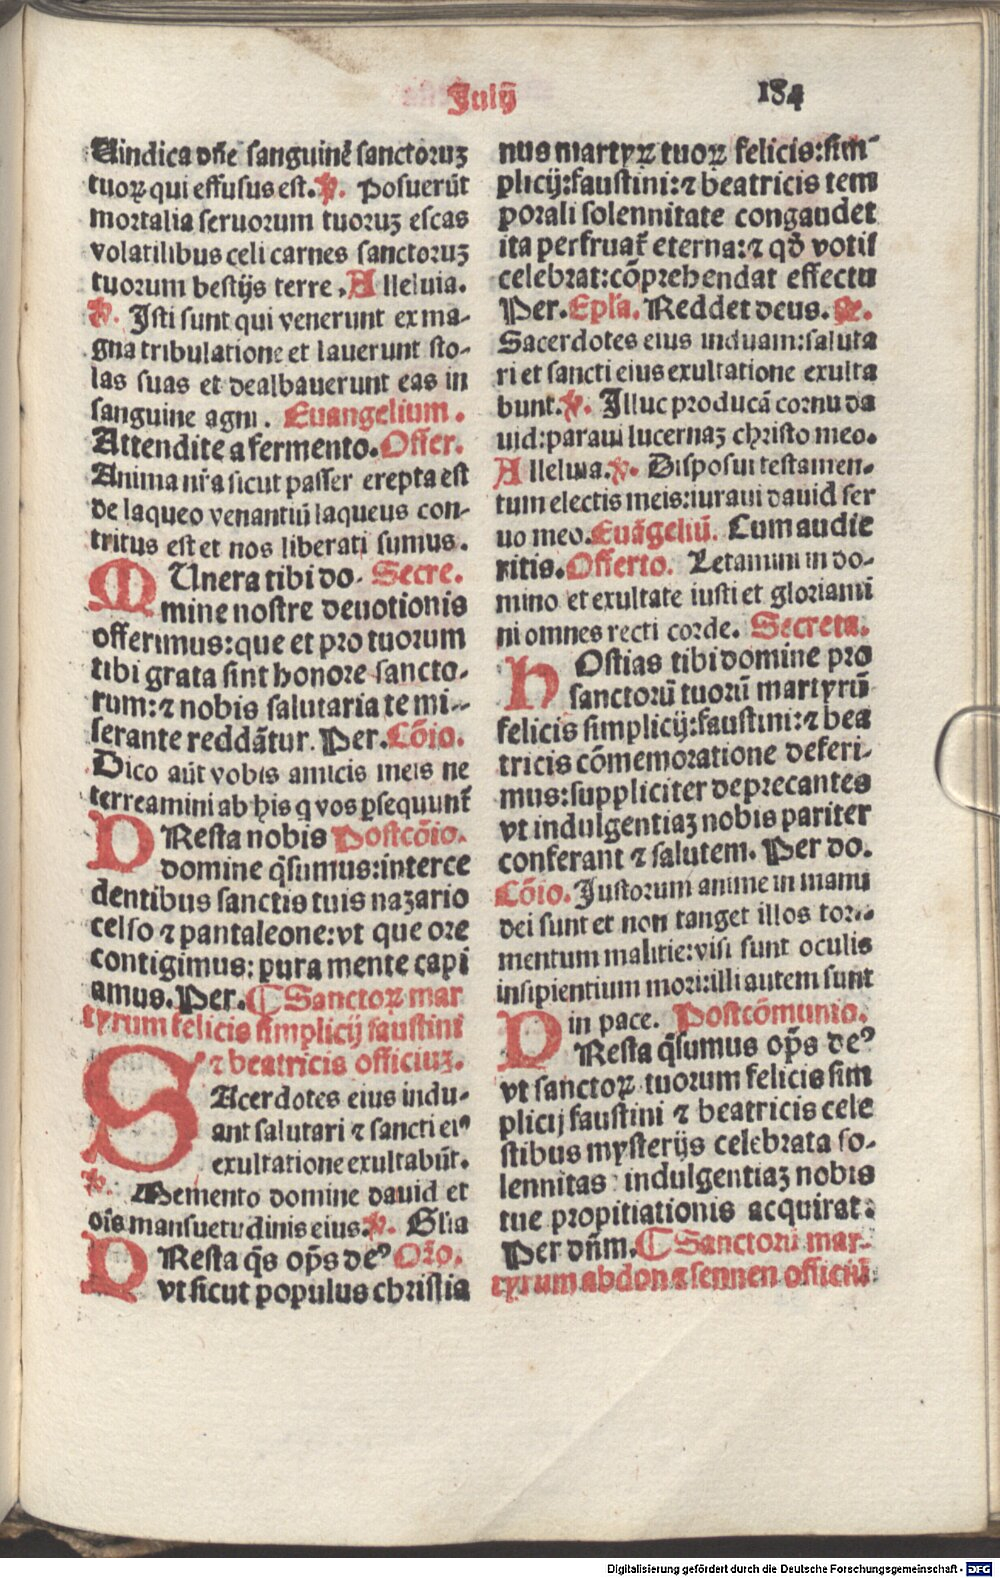 Julij
184
Uindica dñe sanguinẽ sanctoruꝫ
tuoꝝ qui effusus est. ℣. Posuerũt
mortalia seruorum tuoruꝫ escas
volatilibus celi carnes sanctoruꝫ
tuorum bestijs terre. Alleluia.
℣. Isti sunt qui venerunt ex ma-
gna tribulatione et lauerunt sto-
las suas et dealbauerunt eas in
sanguine agni. Euangelium.
Attendite a fermento. Offer.
Anima nr̃a sicut passer erepta est
de laqueo venantiũ laqueus con-
tritus est et nos liberati sumus.
MUnera tibi do- Secre.
mine nostre deuotionis
offerimus: que et pro tuorum
tibi grata sint honore sancto-
rum: ⁊ nobis salutaria te mi-
serante reddãtur. Per. Cõio.
Dico aũt vobis amicis meis ne
terreamini ab his q vos ꝑsequunt̃
PResta nobis Postcõio.
domine q̃sumus: interce
dentibus sanctis tuis nazario
celso ⁊ pantaleone: vt que ore
contigimus: pura mente capi
amus. Per. ¶ Sanctoꝝ mar
tyrum felicis simplicij faustini
⁊ beatricis officiuꝫ.
SAcerdotes eius indu-
ant salutari ⁊ sancti eiꝰ
exultatione exultabũt.
℣. Memento domine dauid et
oĩs mansuetudinis eius. ℣. Glia
PResta q̃s op̃s deꝰ Oŕo.
vt sicut populus christia
nus martyꝝ tuoꝝ felicis: sim
plicij: faustini: ⁊ beatricis tem
porali solennitate congaudet
ita perfruat̃ eterna: ⁊ qđ votis
celebrat: cõprehendat effectu
Per. Epl̃a. Reddet deus. ℟.
Sacerdotes eius induam: saluta
ri et sancti eius exultatione exulta
bunt. ℣. Illuc producã cornu da
uid: paraui lucernaꝫ christo meo.
Alleluia. ℣. Disposui testamen-
tum electis meis: iuraui dauid ser
uo meo. Euãgeliũ. Cum audie
ritis. Offerto. Letamini in do-
mino et exultate iusti et gloriami
ni omnes recti corde. Secreta.
HOstias tibi domine pro
sanctorũ tuorũ martyrũ
felicis simplicij: faustini: ⁊ bea
tricis cõmemoratione deferi-
mus: suppliciter deprecantes
vt indulgentiaꝫ nobis pariter
conferant ⁊ salutem. Per do.
Cõio. Justorum anime in manu
dei sunt et non tanget illos tor-
mentum malitie: visi sunt oculis
insipientium mori: illi autem sunt
in pace. Postcõmunio.
PResta q̃sumus op̃s deꝰ
vt sanctoꝝ tuorum felicis sim
plicij faustini ⁊ beatricis cele
stibus mysterijs celebrata so-
lennitas indulgentiaꝫ nobis
tue propitiationis acquirat:
Per dñm. ¶ Sanctorũ mar-
tyrum abdon ⁊ sennen officiũ:
Digitalisierung gefördert durch die Deutsche Forschungsgemeinschaft - DFG